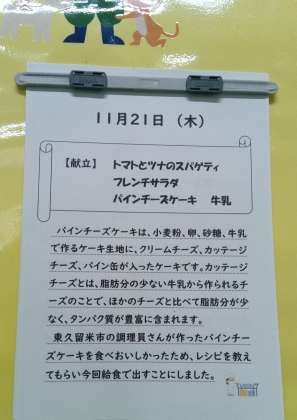 11月21日（木）
【献立】 トマトとツナのスパゲティ
フレンチサラダ
パインチーズケーキ 牛乳
パインチーズケーキは、小麦粉、卵、砂糖、牛乳
で作るケーキ生地に、クリームチーズ、カッテージ
チーズ、パイン缶が入ったケーキです。カッテージ
チーズとは、脂肪分の少ない牛乳から作られるチ
ーズのことで、ほかのチーズと比べて脂肪分が少
なく、タンパク質が豊富に含まれます。
東久留米市の調理員さんが作ったパインチー
ズケーキを食べおいしかったため、レシピを教え
てもらい今回給食で出すことにしました。